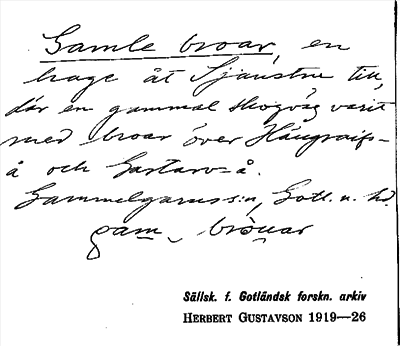 Gamle broar, en
hage åt Sjaustru till,
där en gammal skogväg varit
med broar över Hängraifs-
å och Gartarv-å.
Gammelgarns s:n, Gotl. n. hd.
gam brouar
Sällsk. f. Gotländsk forskn. arkiv
HERBERT GUSTAVSON 1919—26